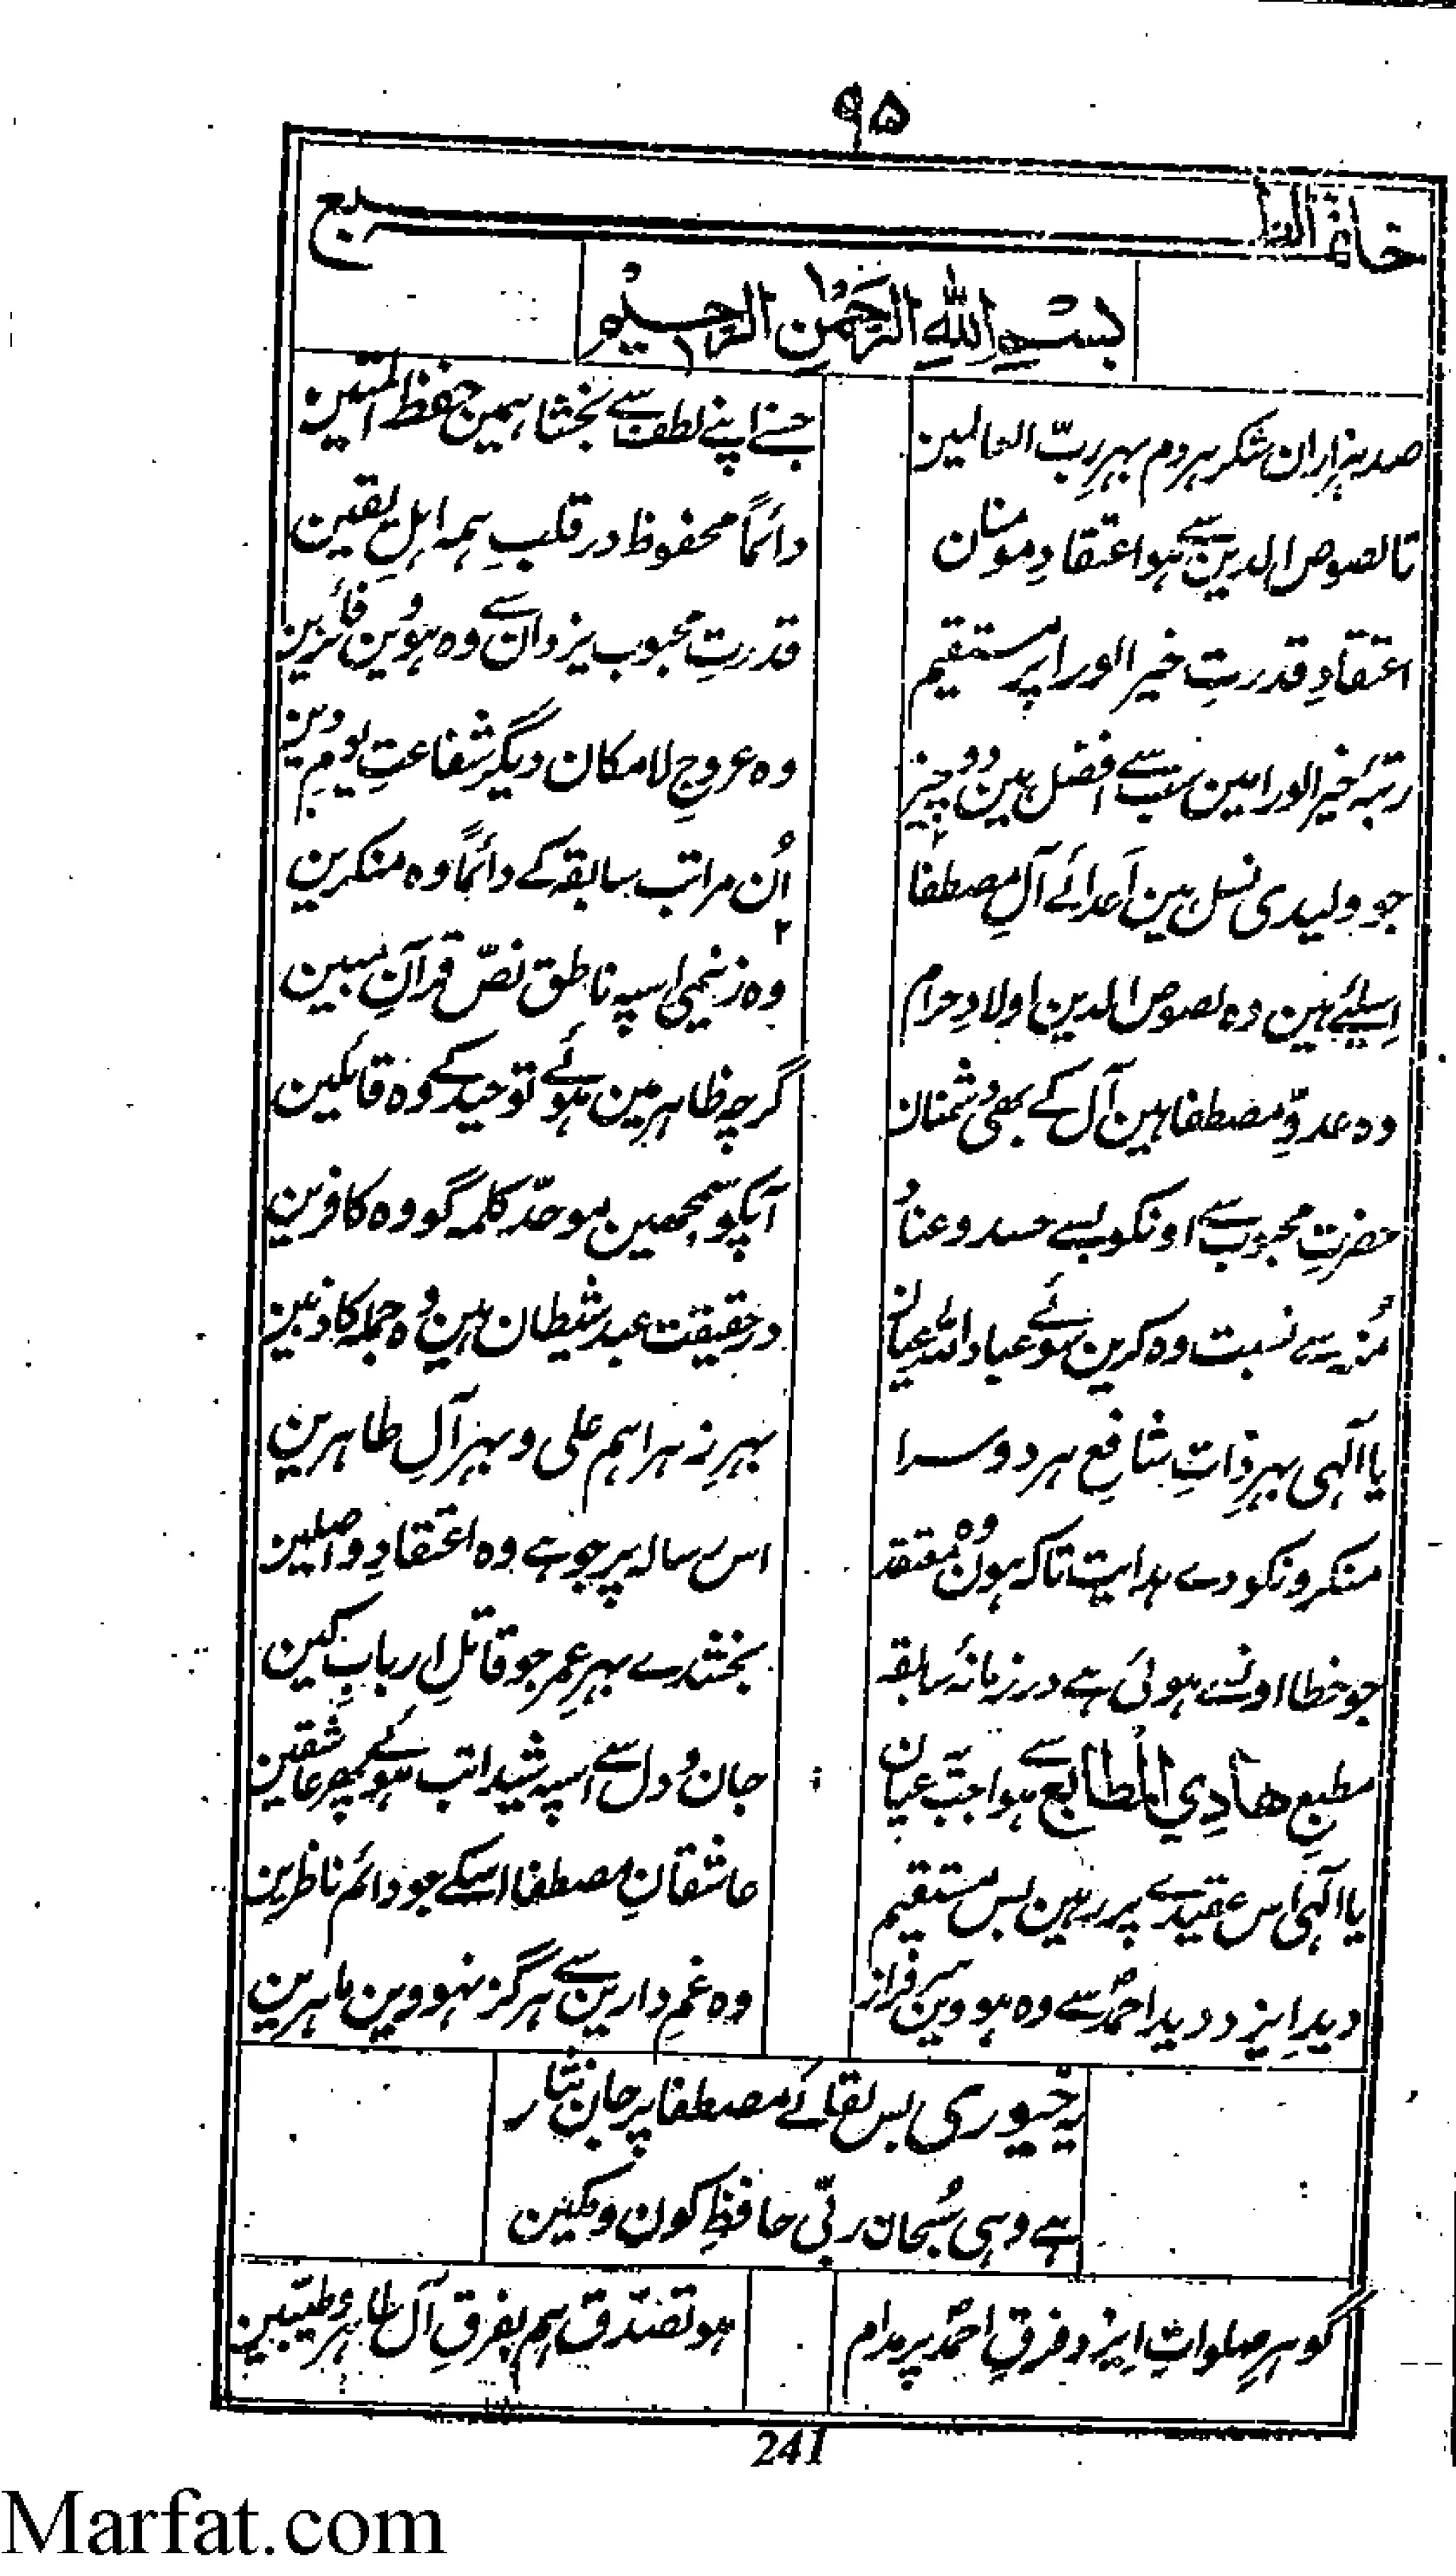 ۹۵
خاتمۃ الطبع
بسم اللہ الرحمن الرحیم
صد ہزاران شکر ہر دم بہر ربّ العالمین جسنے اپنے لطف سے بخشا ہمین حفظ المتین
تا لصوص الدین سے ہو اعتقادِ مومنان دائماً محفوظ در قلبِ ہمہ اہلِ یقین
اعتقادِ قدرتِ خیر الورا پر مستقیم قدرتِ محبوب یزدان سے وہ ہووین فائزین
رتبۂ خیر الورا مین سب سے افضل ہین دو چیز وہ عروجِ لامکان دیگر شفاعتِ یومِ دین
جو ولیدی نسل ہین اَعدائے آلِ مصطفا اُن مراتب سابقہ کے دائماً وہ منکرین
اِسلیے ہین وہ لصوص الدین اولادِ حرام وہ زنیمی اسپہ ناطق نصّ قرآنِ مبین
وہ عدوِّ مصطفا ہین آل کے بھی دشمنان گرچہ ظاہر مین ہوئے توحید کے وہ قائلین
حضرتِ محبوب سے اونکو بسے حسد و عناد آپکو سمجھین موحّد کلمہ گو وہ کافرین
مُنہ سے نسبت وہ کرین ہوئے عباد اللہ عیان در حقیقت عبد شیطان ہین وہ جملہ کاذبین
یا الٰہی بہر ذاتِ شافعِ ہر دو سرا بہرِ زہرا ہم علی و بہر آلِ طاہرین
منکرونکو دے ہدایت تاکہ ہون وہ معتقد اس رسالہ پر جو ہے وہ اعتقادِ واصلین
جو خطا اونسے ہوئی ہے در زمانۂ سابقہ بخشدے بہرِ عمر جو قاتلِ اربابِ کین
مطبعِ ھادِی المطابع سے ہوا جب عیان جان و دل سے اسپہ شیدا تب ہوئے پھر عاشقین
یا الٰہی اس عقیدے پر رہین بس مستقیم عاشقانِ مصطفا اسکے جو دائم ناظرین
دیدِ ایزد دیدِ احمدؐ سے وہ ہووین سرفراز وہ غمِ دارین سے ہرگز نہووین ماہرین
یہ خیوری بس لقائے مصطفا پر جان نثار
ہے وہی سُبحان ربّی حافظِ کون و مکین
گوہرِ صلواتِ ایزد فرقِ احمدؐ پر مدام ہو تصدّق ہم بفرقِ آل طاہر و طیّبین
241
Marfat.com